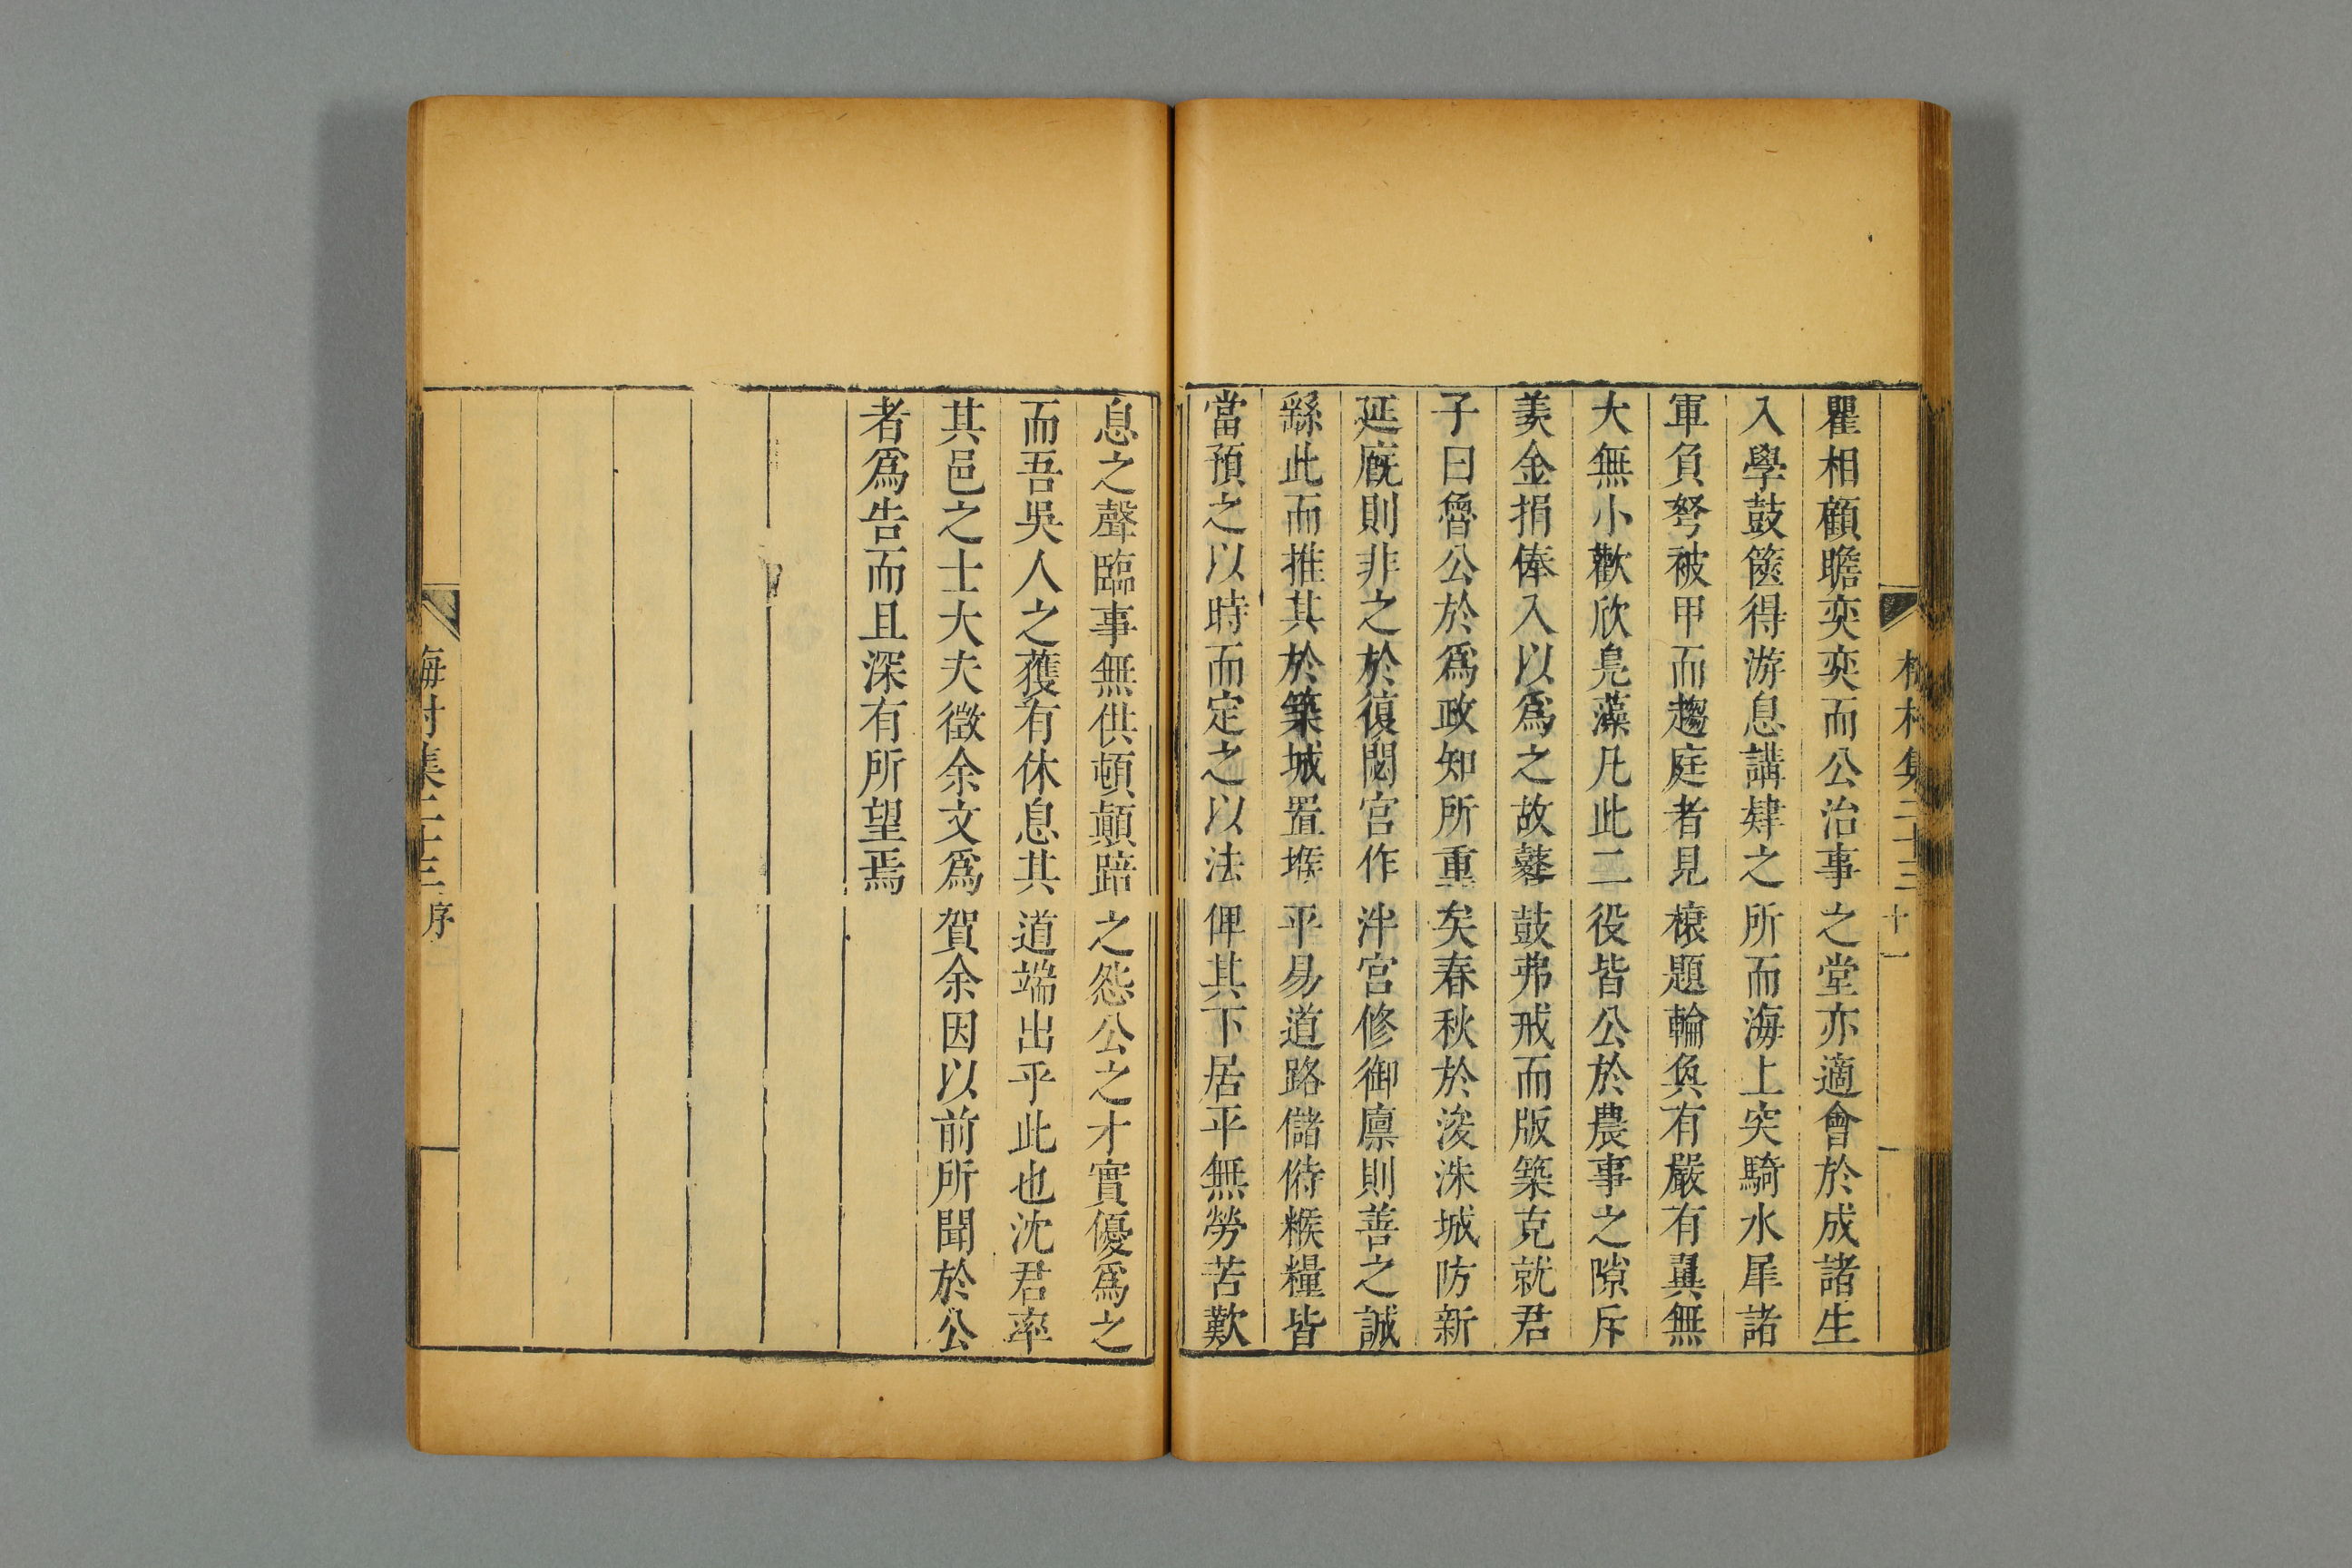 瞿相顧瞻奕奕而公治事之堂亦適會於成諸生
入學鼓篋得游息講肄之所而海上突騎水犀諸
軍負弩被甲而趨庭者見榱題輪奐有嚴有翼無
大無小歡欣鳧藻凡此二役皆公於農事之隙斥
羨金捐俸入以爲之故鼛鼓弗戒而版築克就君
子曰魯公於爲政知所重矣春秋於浚洙城防新
延廐則非之於復閟宮作泮宮修御廩則善之誠
繇此而推其於築城置堠平易道路儲偫糇糧皆
當預之以時而定之以法俾其下居平無勞苦歎
息之聲臨事無供頓顛踣之怨公之才實優爲之
而吾吳人之獲有休息其道端出乎此也沈君率
其邑之士大夫徵余文爲賀余因以前所聞於公
者爲告而且深有所望焉
梅村集二十三 十一
梅村集二十三 序